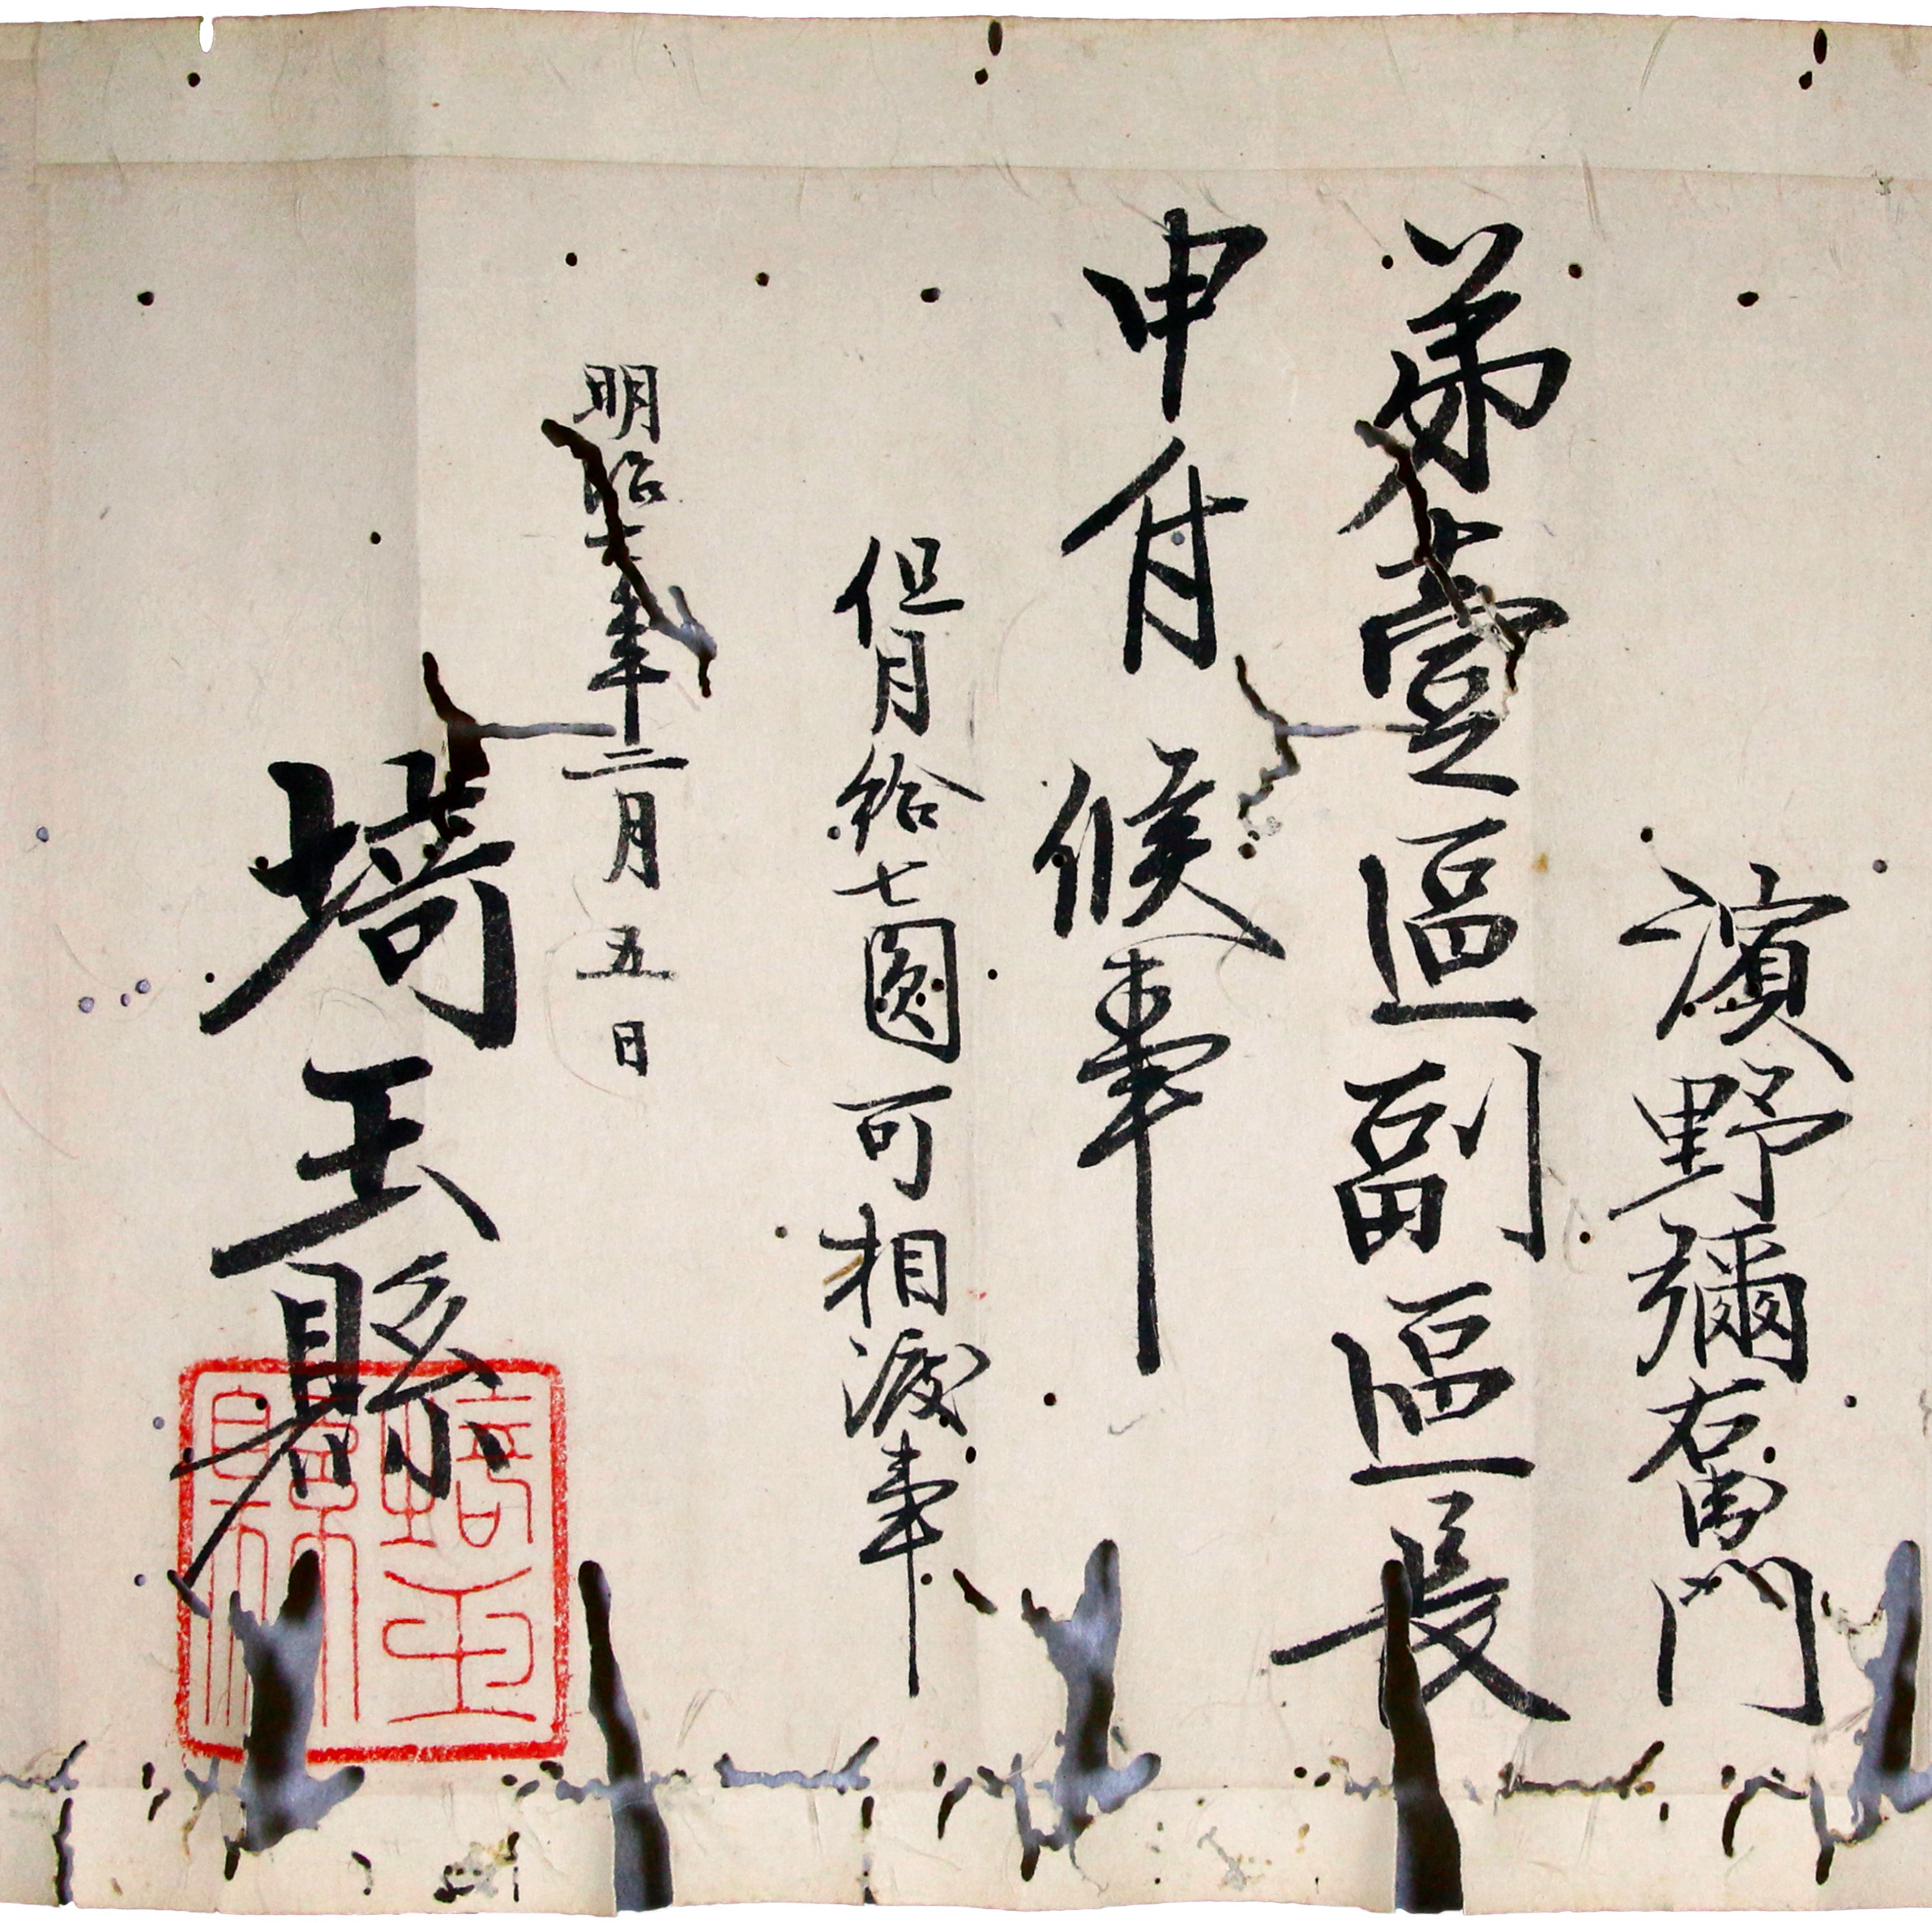 濱野彌右衛門
第壹區副區長
申付候事
但月給七圓可相渡事
明治年二月五日
埼玉縣
埼玉縣印